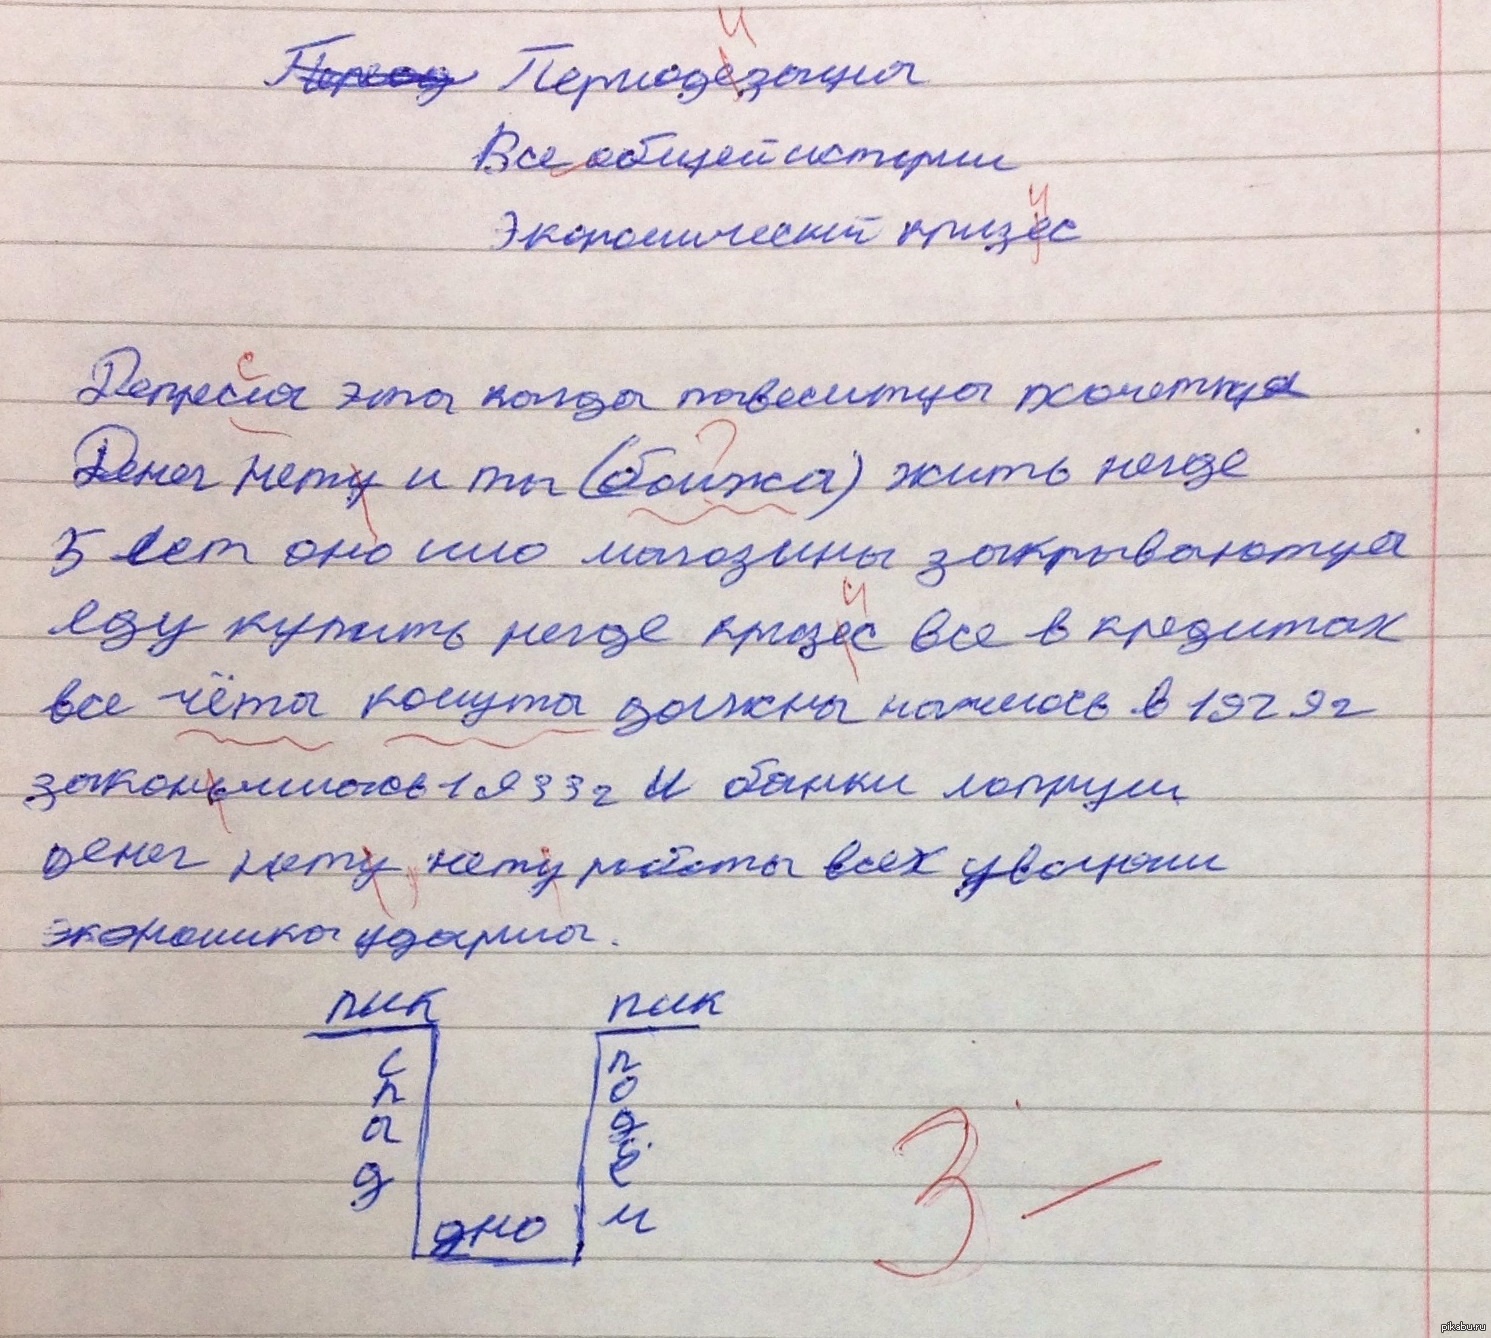 Периодезация
Все общей истории
Экономический кризес
Депресия эта когда павеситца хочетца
Денег нету и ты (боижа) жить негде
5 лет оно шло магозины закрываютца
еду купить негде кризес все в кредитах
все чёты кошута должны началось в 1929г
законьчилась 1933г и банки лопнули
денег нету нету работы всех уволили
экономика ударила.
пик пик
спад
подъём
дно
3-
pikabu.ru